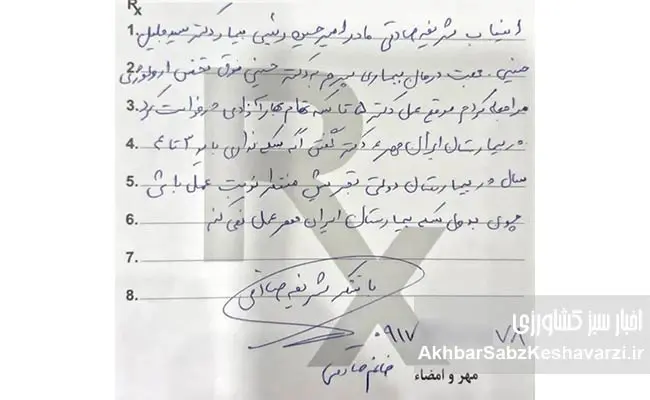 Rx
1. اینجانب شریفه صادقی مادر امیرحسین رئیسی بیمار دکتر سید جلیل
2. حسینی. جهت درمان بیماری پسرم به دکتر حسینی فوق تخصص ارولوژی
3. مراجعه کردم موقع عمل دکتر ۵ تا سکه تمام بهار آزادی درخواست کرد
4. در بیمارستان ایران مهر، دکتر گفتن اگه سکه نداری باید ۳ تا ۴
5. سال در بیمارستان دولتی تجریش منتظر نوبت عمل باشی
6. چون بدون سکه بیمارستان ایران مهر عمل نمی کنم
7.
8. با تشکر شریفه صادقی
۰۹۱۷ ۷/۲
مهر و امضاء خانم صادقی
اخبار سبز کشاورزی
AkhbarSabzKeshavarzi.ir